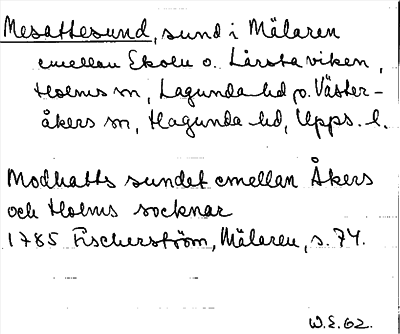 Mesattesund, sund i Mälaren
emellan Ekoln o. Lårstaviken,
Holms sn, Lagunda hd o. Väster-
åkers sn, Hagunda hd, Upps. l.
Modhatts sundet emellan Åkers
och Holms socknar
1785 Fischerström, Mälaren, s. 74.
W.E. 62.